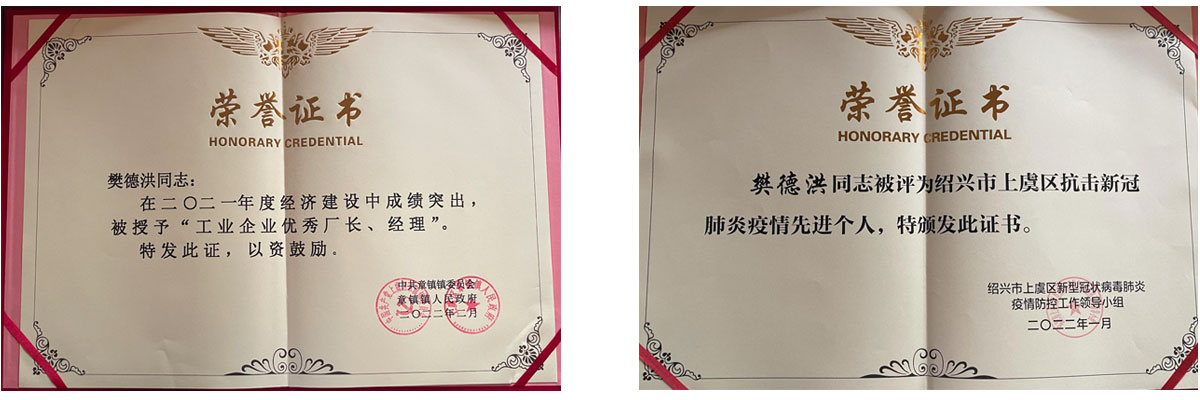 荣誉证书
HONORARY CREDENTIAL
樊德洪同志：
在二〇二一年度经济建设中成绩突出，
被授予“工业企业优秀厂长、经理”。
特发此证，以资鼓励。
中共章镇镇委员会
章镇镇人民政府
二〇二二年二月
荣誉证书
HONORARY CREDENTIAL
樊德洪同志被评为绍兴市上虞区抗击新冠
肺炎疫情先进个人，特颁发此证书。
绍兴市上虞区新型冠状病毒肺炎
疫情防控工作领导小组
二〇二二年一月